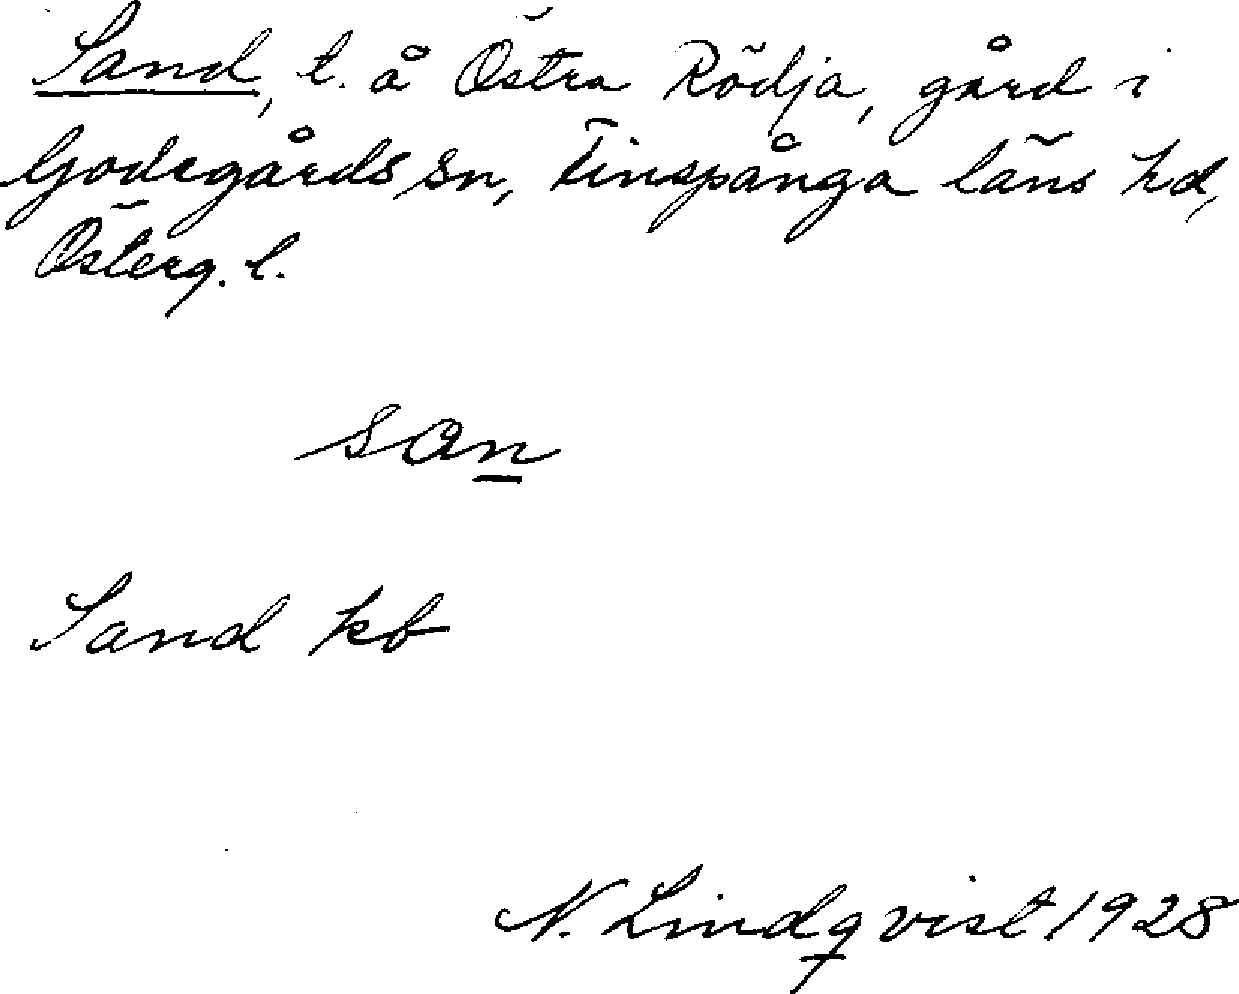 Sand, t. å Östra Rödja, gård i
Godegårds sn, Finspånga läns hd,
Österg. l.
san
Sand kb
N. Lindqvist 1928